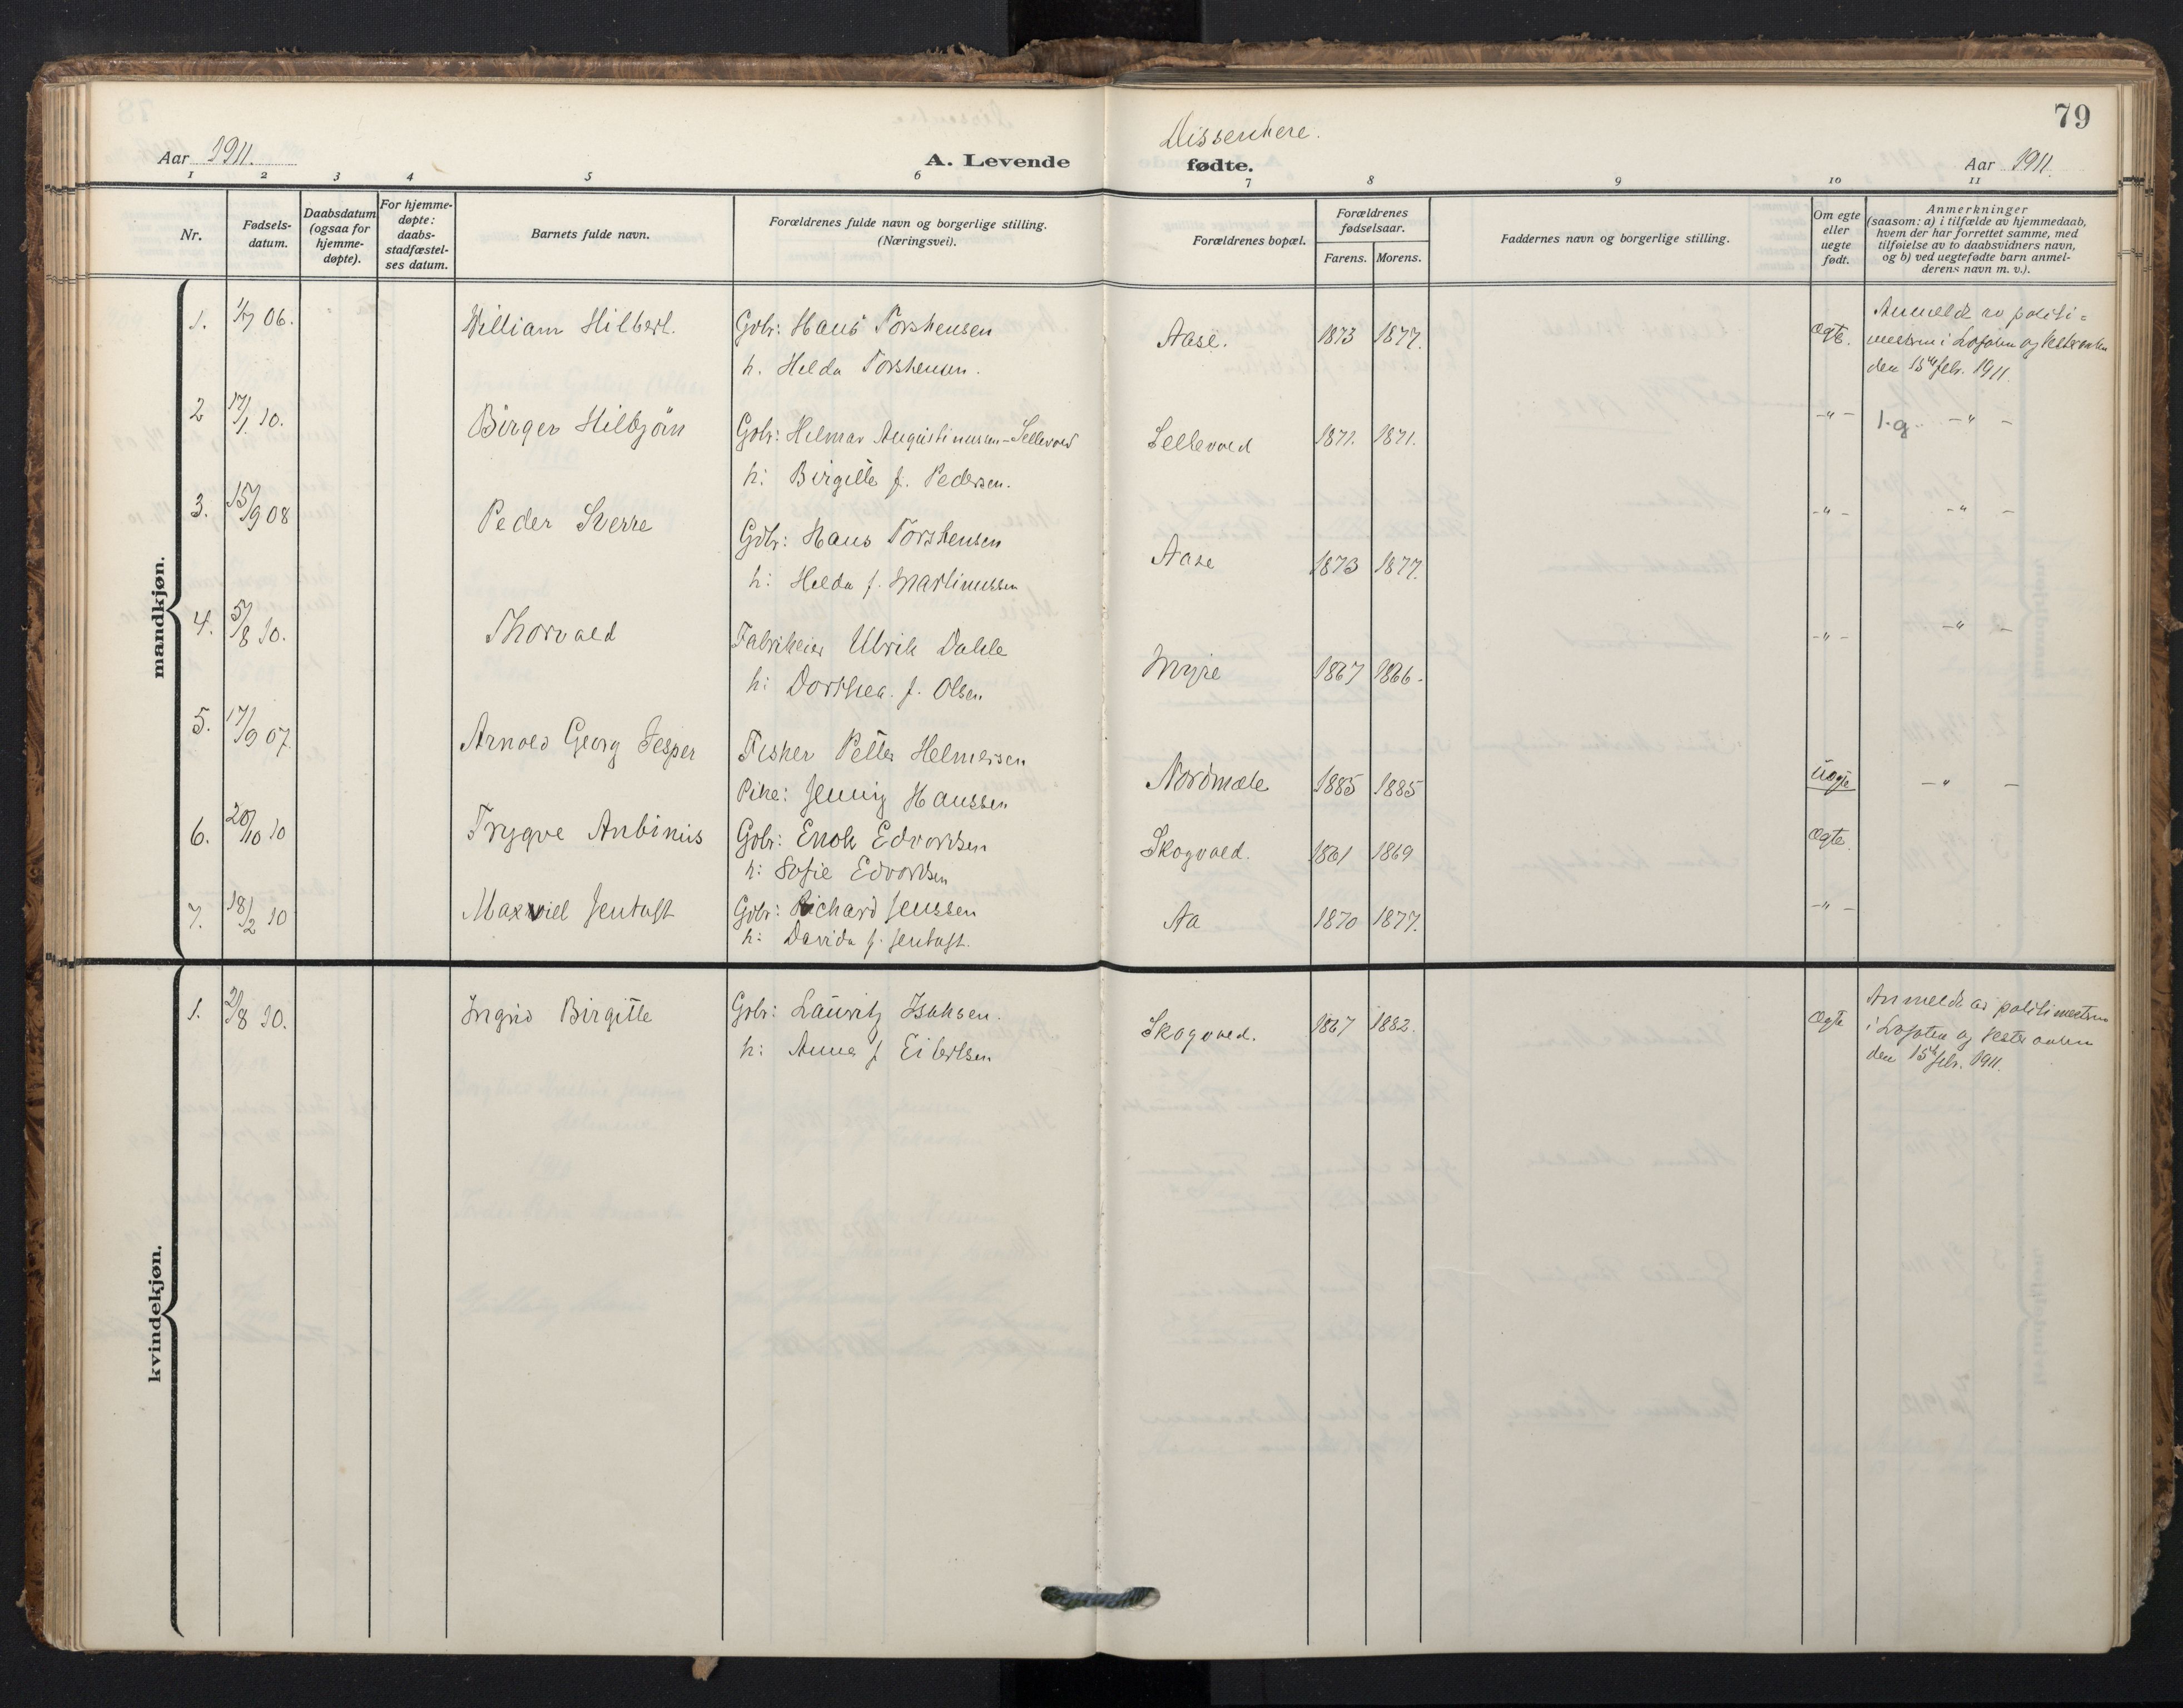 79
Dissentere.
Aar 1911.
A. Levende fødte.
Aar 1911.
1 2 3 4 5 6 7 8 9 10 11
Nr.
Fødsels-
datum.
Daabsdatum
(ogsaa for
hjemme-
døpte).
For hjemme-
døpte:
daabs-
stadfæstel-
ses datum.
Barnets fulde navn.
Forældrenes fulde navn og borgerlige stilling.
(Næringsvei).
Forældrenes bopæl.
Forældrenes
fødselsaar.
Farens. Morens.
Faddernes navn og borgerlige stilling.
Om egte
eller
uegte
født.
Anmerkninger
(saasom: a) i tilfælde av hjemmedaab,
hvem der har forrettet samme, med
tilføielse av to daabsvidners navn,
og b) ved uegtefødte barn anmel-
derens navn m. v.).
mandkjøn.
1. 1/7 06. William Hilbert. Gbr: Hans Torstensen Aase. 1873 1877. Ægte.
h. Helda Torstensen.
Anmeldt av politi=
mesteren i Lofoten og Vesteraalen
den 15de febr. 1911.
2 17/1 10. Birger Hilbjörn Gbr: Hilmar Augustinussen-Sellevold Sellevold 1871. 1871. -"- -"-
h: Birgitte f. Pedersen.
3. 15/9 08 Peder Sverre Gbr: Hans Torstensen Aase 1873 1877. -"- -"-
h: Helda f. Martinussen
4. 5/8 10. Thorvald Fabrikeier Ulrik Dahle Myre 1867 1866. -"- -"-
h: Dorthea. f. Olsen
5. 17/9 07. Arnold Georg Jesper Fisker Petter Helmersen Nordmæle 1885 1885 uægte -"-
Pike: Jenny Hanssen
6. 20/10 10 Trygve Anbinius Gbr: Enok Edvardsen Skogvold. 1861 1869 Ægte.
h: Sofie Edvardsen
7. 18/2 10 Maxwiel Jentoft Gbr: Richard Jenssen Aa 1870 1877. -"-
h: Davida f. Jentoft.
kvindekjøn.
1. 2/8 10. Ingrid Birgitte Gbr: Lauritz Isaksen. Skogvold. 1867 1882. Ægte
h: Anna f Eilertsen
Anmeldt av politimesteren
i Lofoten og Vesteraalen
den 15de febr. 1911.